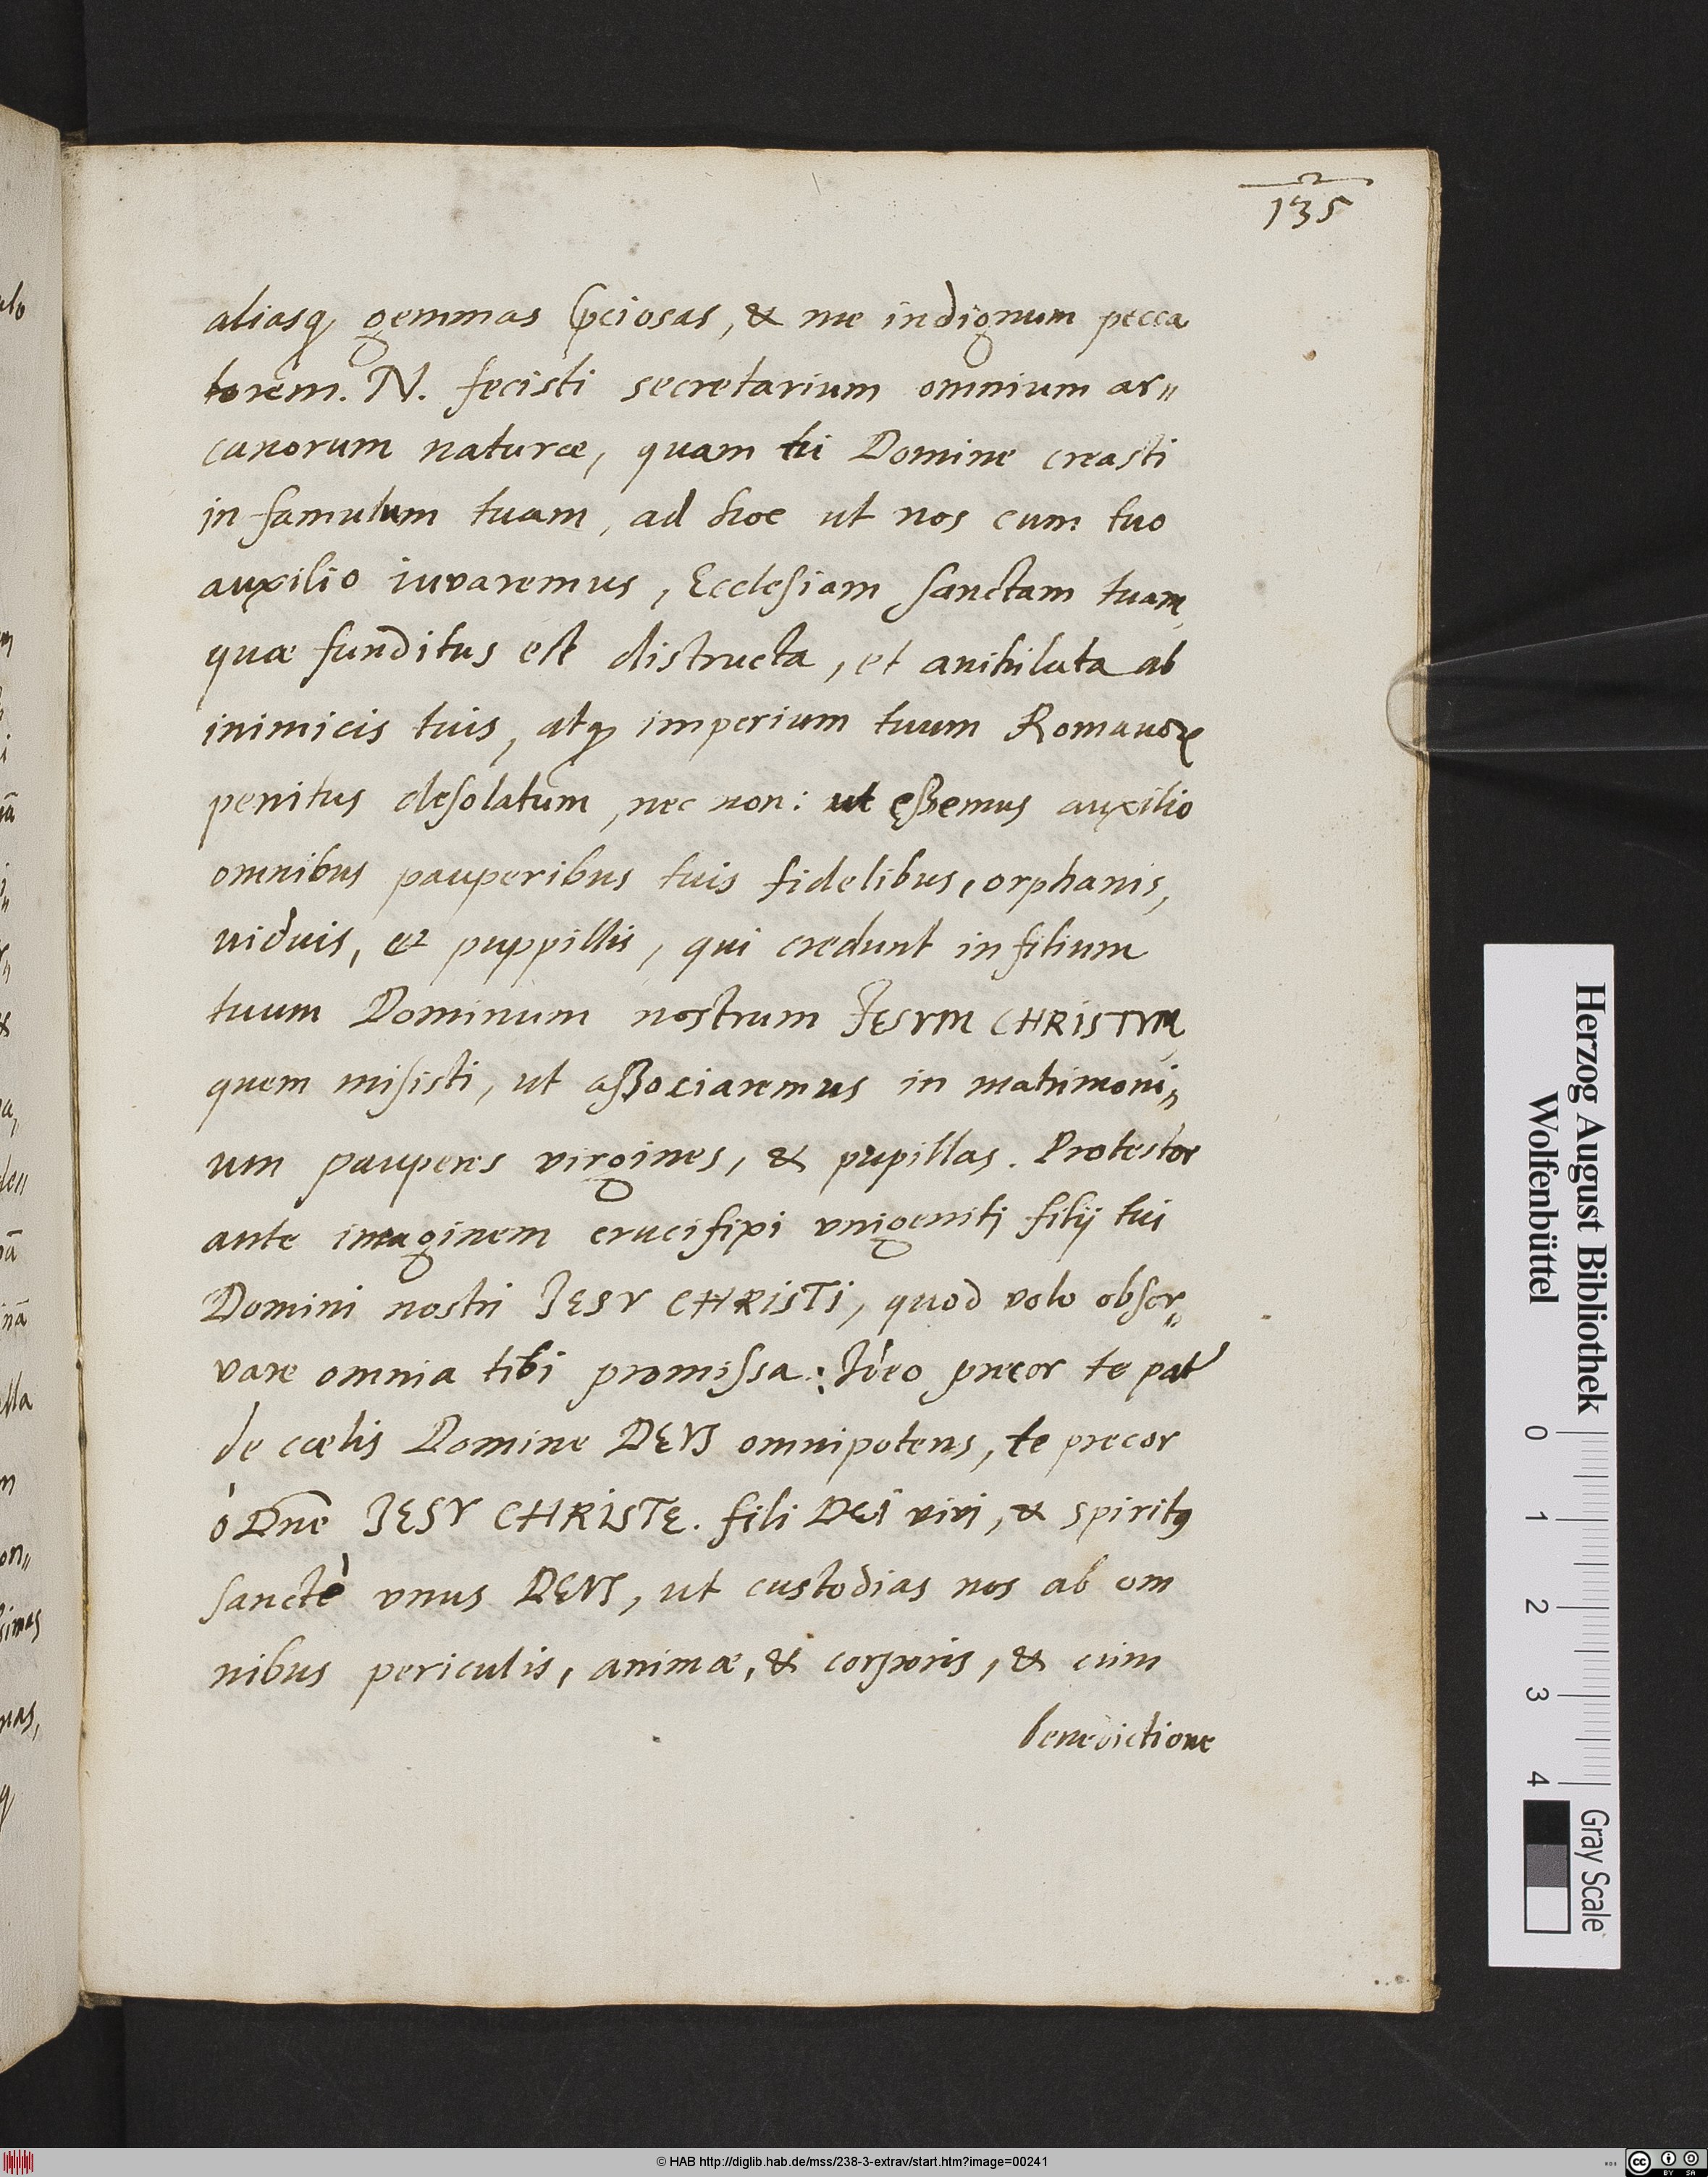 135
aliasq gemmas p̄ciosas, & me indignum pecca
torem. N. fecisti secretarium omnium ar„
canorum naturæ, quam tu Domine creasti
in famulum tuam, ad hoc ut nos cum tuo
auxilio iuvaremus, Ecclesiam sanctam tuam,
quæ funditus est distructa, et anihilata ab
inimicis tuis, atq imperium tuum Romanoꝝ
penitus desolatum, nec non: ut eßemus auxilio
omnibus pauperibus tuis fidelibus, orphanis,
uiduis, et puppillis, qui credunt in filium
tuum Dominum nostrum JESVM CHRISTVM,
quem misisti, ut aßociaremus in matrimoni„
um pauperes virgines, & pupillas. Protestor
ante imaginem crucifixi vnigeniti filij tui
Domini nostri JESV CHRISTI, quod volo obser„
vare omnia tibi promissa: Ideo precor te pat'
de cœlis Domine DEVS omnipotens, te precor
ò Dn̄e JESV CHRISTE. fili DEI vivi, & spiritꝰ
sanctè vnus DEVS, ut custodias nos ab om
nibus periculis, animæ, & corporis, & cum
benedictione
Herzog August Bibliothek
Wolfenbüttel
0 1 2 3 4
Gray Scale
© HAB http://diglib.hab.de/mss/238-3-extrav/start.htm?image=00241